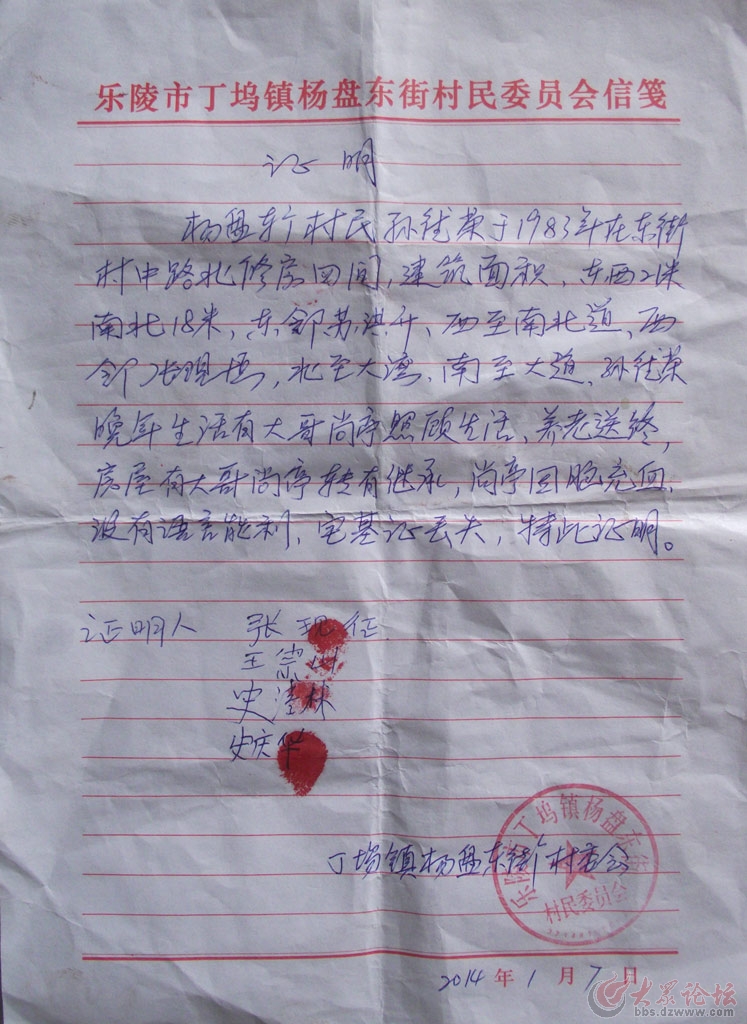 乐陵市丁坞镇杨盘东街村民委员会信笺
证明
杨盘东街村民孙 荣于1983年在东街
村中路北修房四间,建筑面积、东西21米
南北18米,东邻苏洪升、西至南北道、西
邻张现 ,北至大湾、南至大道、孙 荣
晚年生活有大哥尚亭照顾生活、养老送终,
房屋有大哥尚亭转有继承,尚亭因脑充血
没有语言能利、宅基证丢失,特此证明。
证明人 张现征
王崇
史清林
史庆华
丁坞镇杨盘东街村委会
乐陵市丁坞镇杨盘东街
村民委员会
2014年1月7日
大众论坛
bbs.dzwww.com